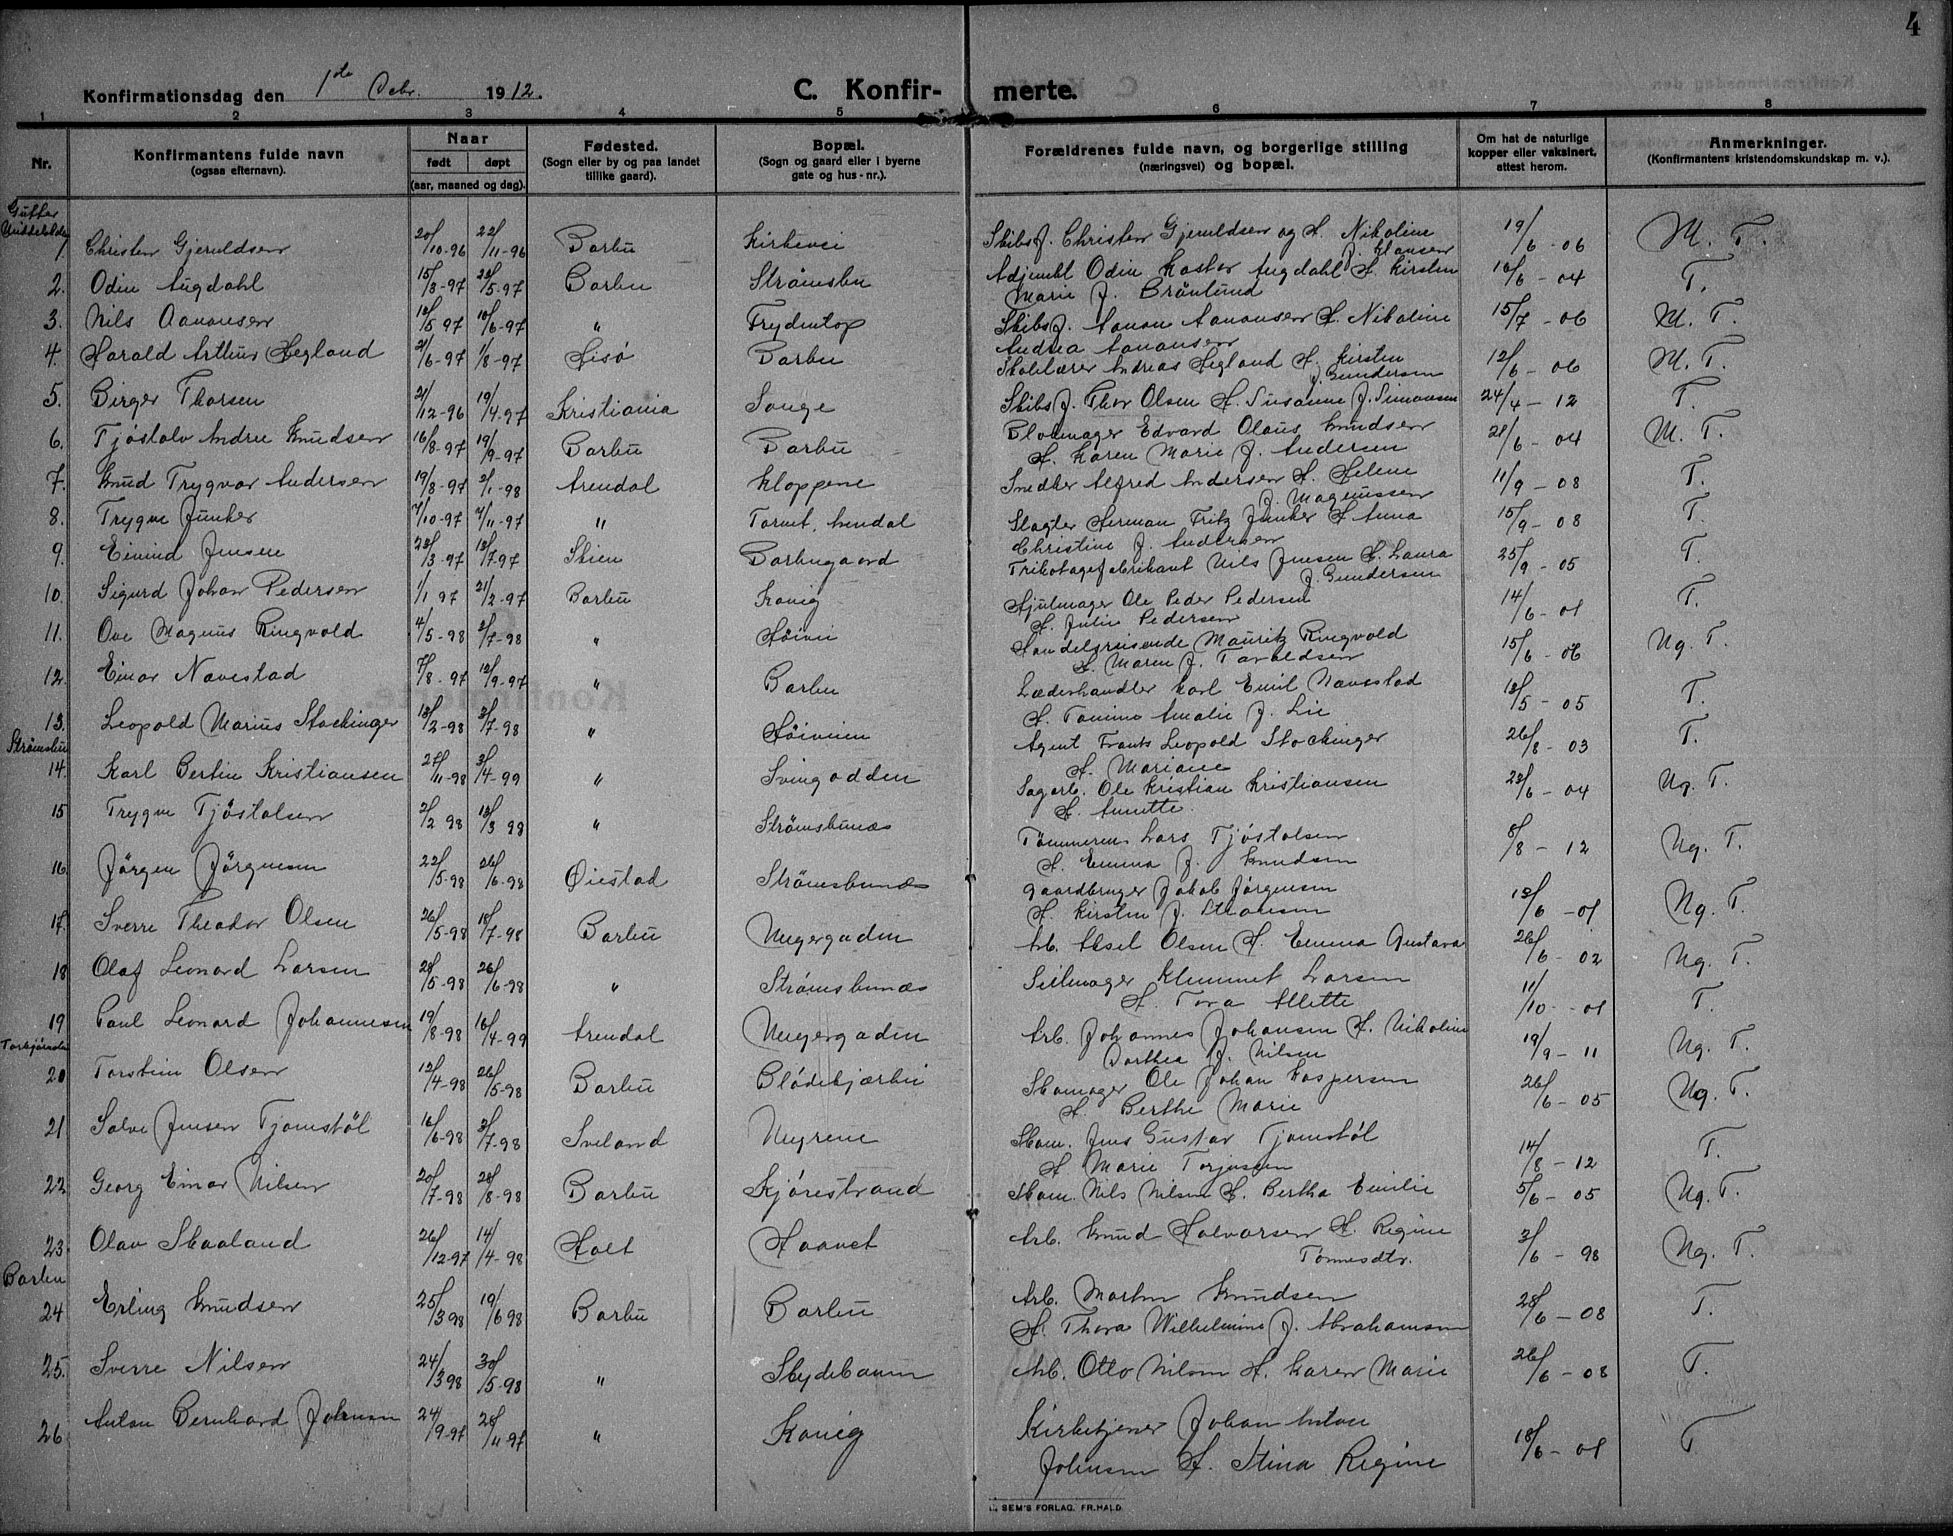 4
Konfirmationsdag den 1ste Octbr. 1912. C. Konfir- merte.
1 2 3 4 5 6 7 8
Nr. Konfirmantens fulde navn (ogsaa efternavn). Naar født døpt (aar, maaned og dag). Fødested. (Sogn eller by og paa landet tillike gaard). Bopæl. (Sogn og gaard eller i byerne gate og hus-nr.). Forældrenes fulde navn, og borgerlige stilling (næringsvei) og bopæl. Om hat de naturlige kopper eller vaksinert, attest herom. Anmerkninger. (Konfirmantens kristendomskundskap m. v.).
Gutter
1. Christen Gjeruldsen 20/10-96 22/11-96 Barbu Kirkevei Skibsf. Christen Gjeruldsen og H. Nikoline f. Klausen 19/6-06 M. T.
2. Odin Augdahl 15/3-97 23/5-97 Barbu Strømsbu Adjunkt Odin Kastor Augdahl H. Kirsten Marie f. Brønlund 16/6-04 T.
3. Nils Aanonsen 12/5 97 10/6-97 " Frydentop Skibsf. Aanon Aanonsen H. Nikoline Andrea Aanonsen 15/7-06 M. T.
4. Harald Arthur Hegland 21/6-97 1/8-97 Hisø Barbu Skolelærer Andreas Hegland H. Kirsten f. Gundersen 12/6-06 M. T.
5. Birger Thorsen 21/12-96 19/4-97 Kristiania Songe Skibsf. Thor Olsen H. Susanne f. Simonsen 24/4-12 T.
6. Tjøstolv Andreе Knudsen 16/8-97 19/9-97 Barbu Barbu Blokmager Edvard Olaus Knudsen H. Karen Marie f. Andersen 21/6-04 M. T.
7. Knud Trygvar Andersen 19/8-97 2/1-98 Arendal Kloppene Snedker Alfred Andersen H. Helene f. Magnussen 11/9-08 T.
8. Trygve Junker 7/10-97 7/11-97 " Torvet, Arendal Slagter Herman Fritz Junker H. Anna Christine f. Andersen 15/9-08 T.
9. Eivind Jensen 23/3-97 13/7-97 Skien Barbugaard Trikotagefabrikant Nils Jensen H. Laura f. Gundersen 25/9-05 T.
10. Sigurd Johan Pedersen 1/1 97 21/2-97 Barbu Kanig Hjulmager Ole Peder Pedersen H. Julie Pedersen 14/6-01 T.
11. Ove Magnus Ringvold 4/5-98 2/7-98 " Høivei Handelsreisende Mauritz Ringvold H. Maren f. Taraldsen 15/6-06 Ng. T.
12. Einar Navestad 7/8-97 12/9-97 " Barbu Læderhandler Karl Emil Navestad H. Tomine Amalie f. Lie 13/5-05 T.
13. Leopold Marius Stockinger 13/2-98 3/7-98 " Høiveien Agent Frants Leopold Stockinger H. Mariane 26/8-03 T.
Strømsbu
14. Karl Bertin Kristiansen 27/11-98 3/4-99 " Svingodden Sagarb. Ole Kristian Kristiansen H. Anette. 23/6-04 Ng. T.
15 Trygve Tjøstolsen 2/2 98 13/3 98 " Strømsbunæs Tømmerm. Lars Tjøstolsen H. Emma f. Knudsen 8/8-12 Ng. T.
16 Jørgen Jørgensen 22/5-98 26/6-98 Øiestad Strømsbunæs Gaardbruger Jakob Jørgensen H. Kirsten f. 13/6-01 Ng. T.
17. Sverre Theodor Olsen 26/5-98 18/7-98 Barbu Ungergaden Arb. Aksel Olsen H. Emma Gustava 26/6-02 Ng. T.
18 Olaf Leonard Larsen 28/5-98 26/6-98 " Strømsbunæs Seilmager Klemmet Larsen H. Tora Alette 11/10-01 T.
19 Paul Leonard Johannesen 19/8-98 16/4-99 Arendal Ungergaden Arb. Johannes Johansen H. Nikoline Dorthea f. Nilsen 19/9-11 Ng. T.
20 Torstein Olsen 12/4-98 26/5-98 Barbu Blødekjær Skomager Ole Johan Kaspersen H. Berthe Marie 26/6-05 Ng. T.
21 Salve Jensen Tjomstøl 16/6-98 3/7-98 Sveland Myrene Skom. Jens Gustav Tjomstøl H. Marie Torjussen 14/8-12 T.
22 Georg Einar Nilsen 20/7-98 28/8-98 Barbu Kjørestrand Skom. Nils Nilsen H. Bertha Emilie 5/6-05 Ng. T.
23. Olav Skaaland 26/12-97 14/4-98 Holt Haavet Arb. Knud Halvorsen H. Regine Tønnesdtr. 3/6-98 Ng. T.
Barbu
24 Erling Knudsen 25/3 98 19/6 98 Barbu Barbu Arb. Morten Knudsen H. Thora Wilhelmine f. Abrahamsen 28/6-08 T.
25. Sverre Nilsen 24/3 98 30/5-98 " Skydebanen Arb. Otto Nilsen H. Karen Marie 26/6-08 T.
26 Anton Bernhard Johnsen 24/9-97 28/11-97 " Kanig Kirketjener Johan Anton Johnsen H. Stina Regine 18/6-01 T.
SEM'S FORLAG. FR.HALD